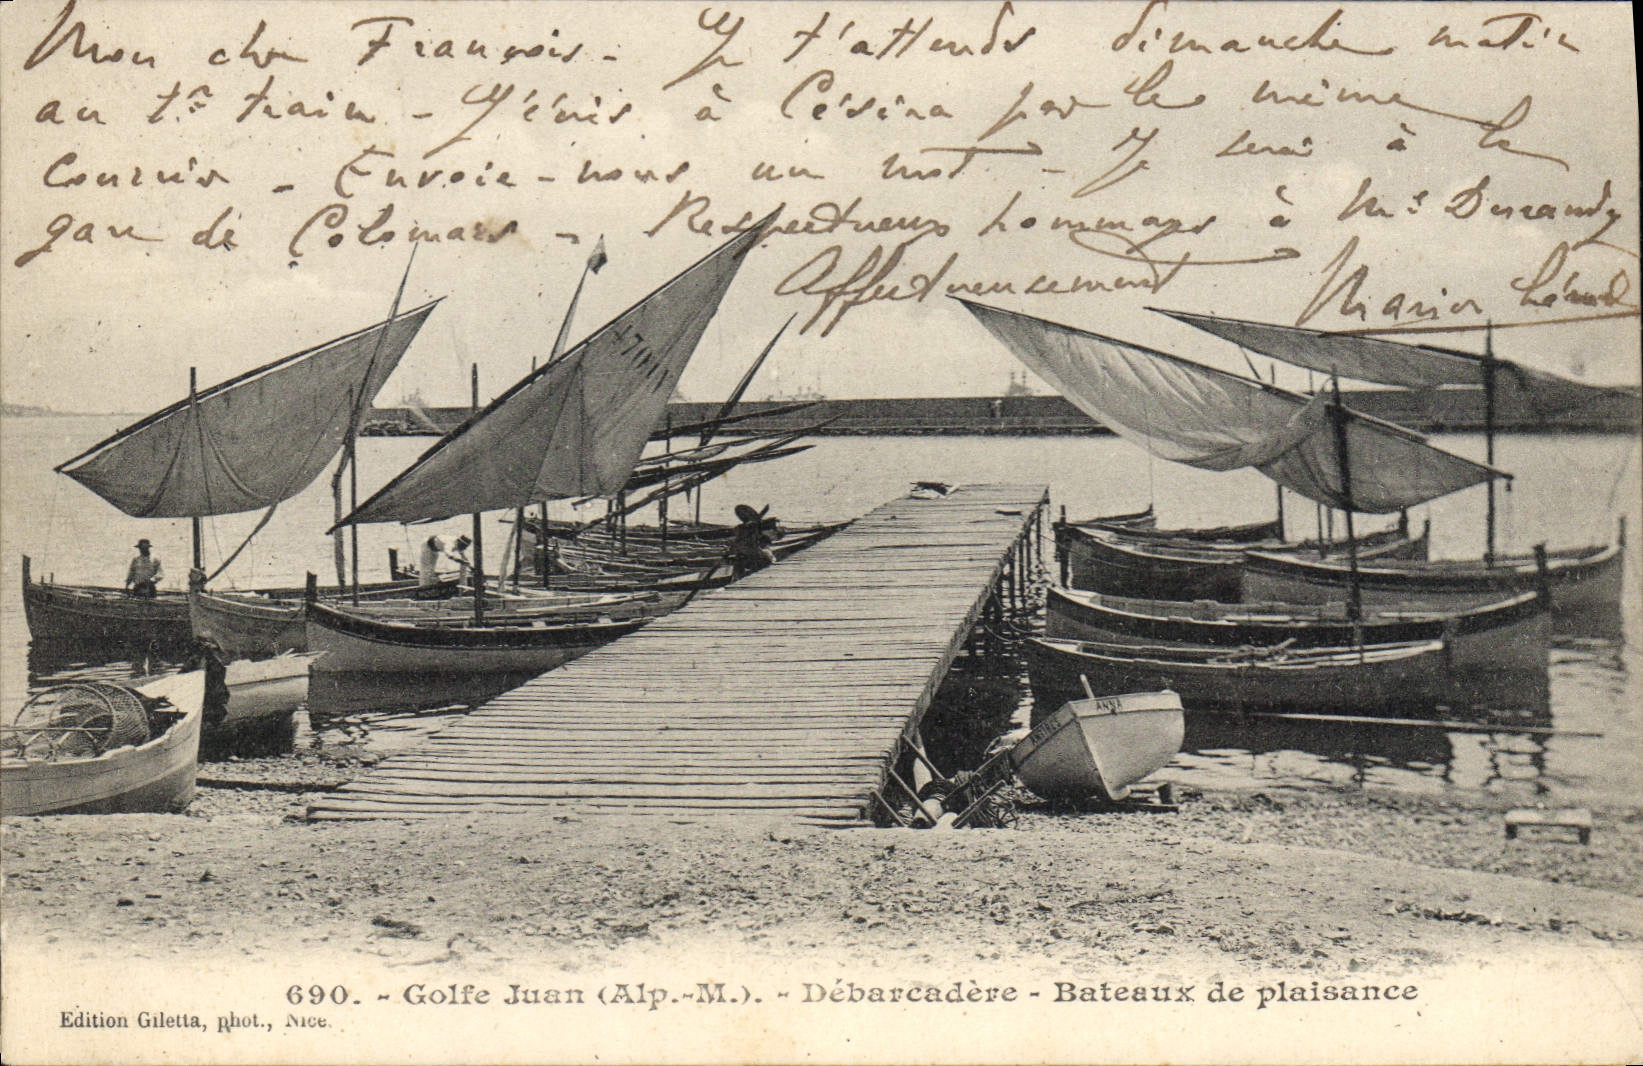 Mon cher François - Je t'attends dimanche matin
au 1er train - J'écris à Césira par le même
courrier - Envoie-nous un mot - Je serai à la
gare de Colomars - Respectueux hommages à Mr Durandy
Affectueusement
Marion
ANNA
ANTIBES
690. - Golfe Juan (Alp.-M.). - Débarcadère - Bateaux de plaisance
Edition Giletta, phot., Nice.